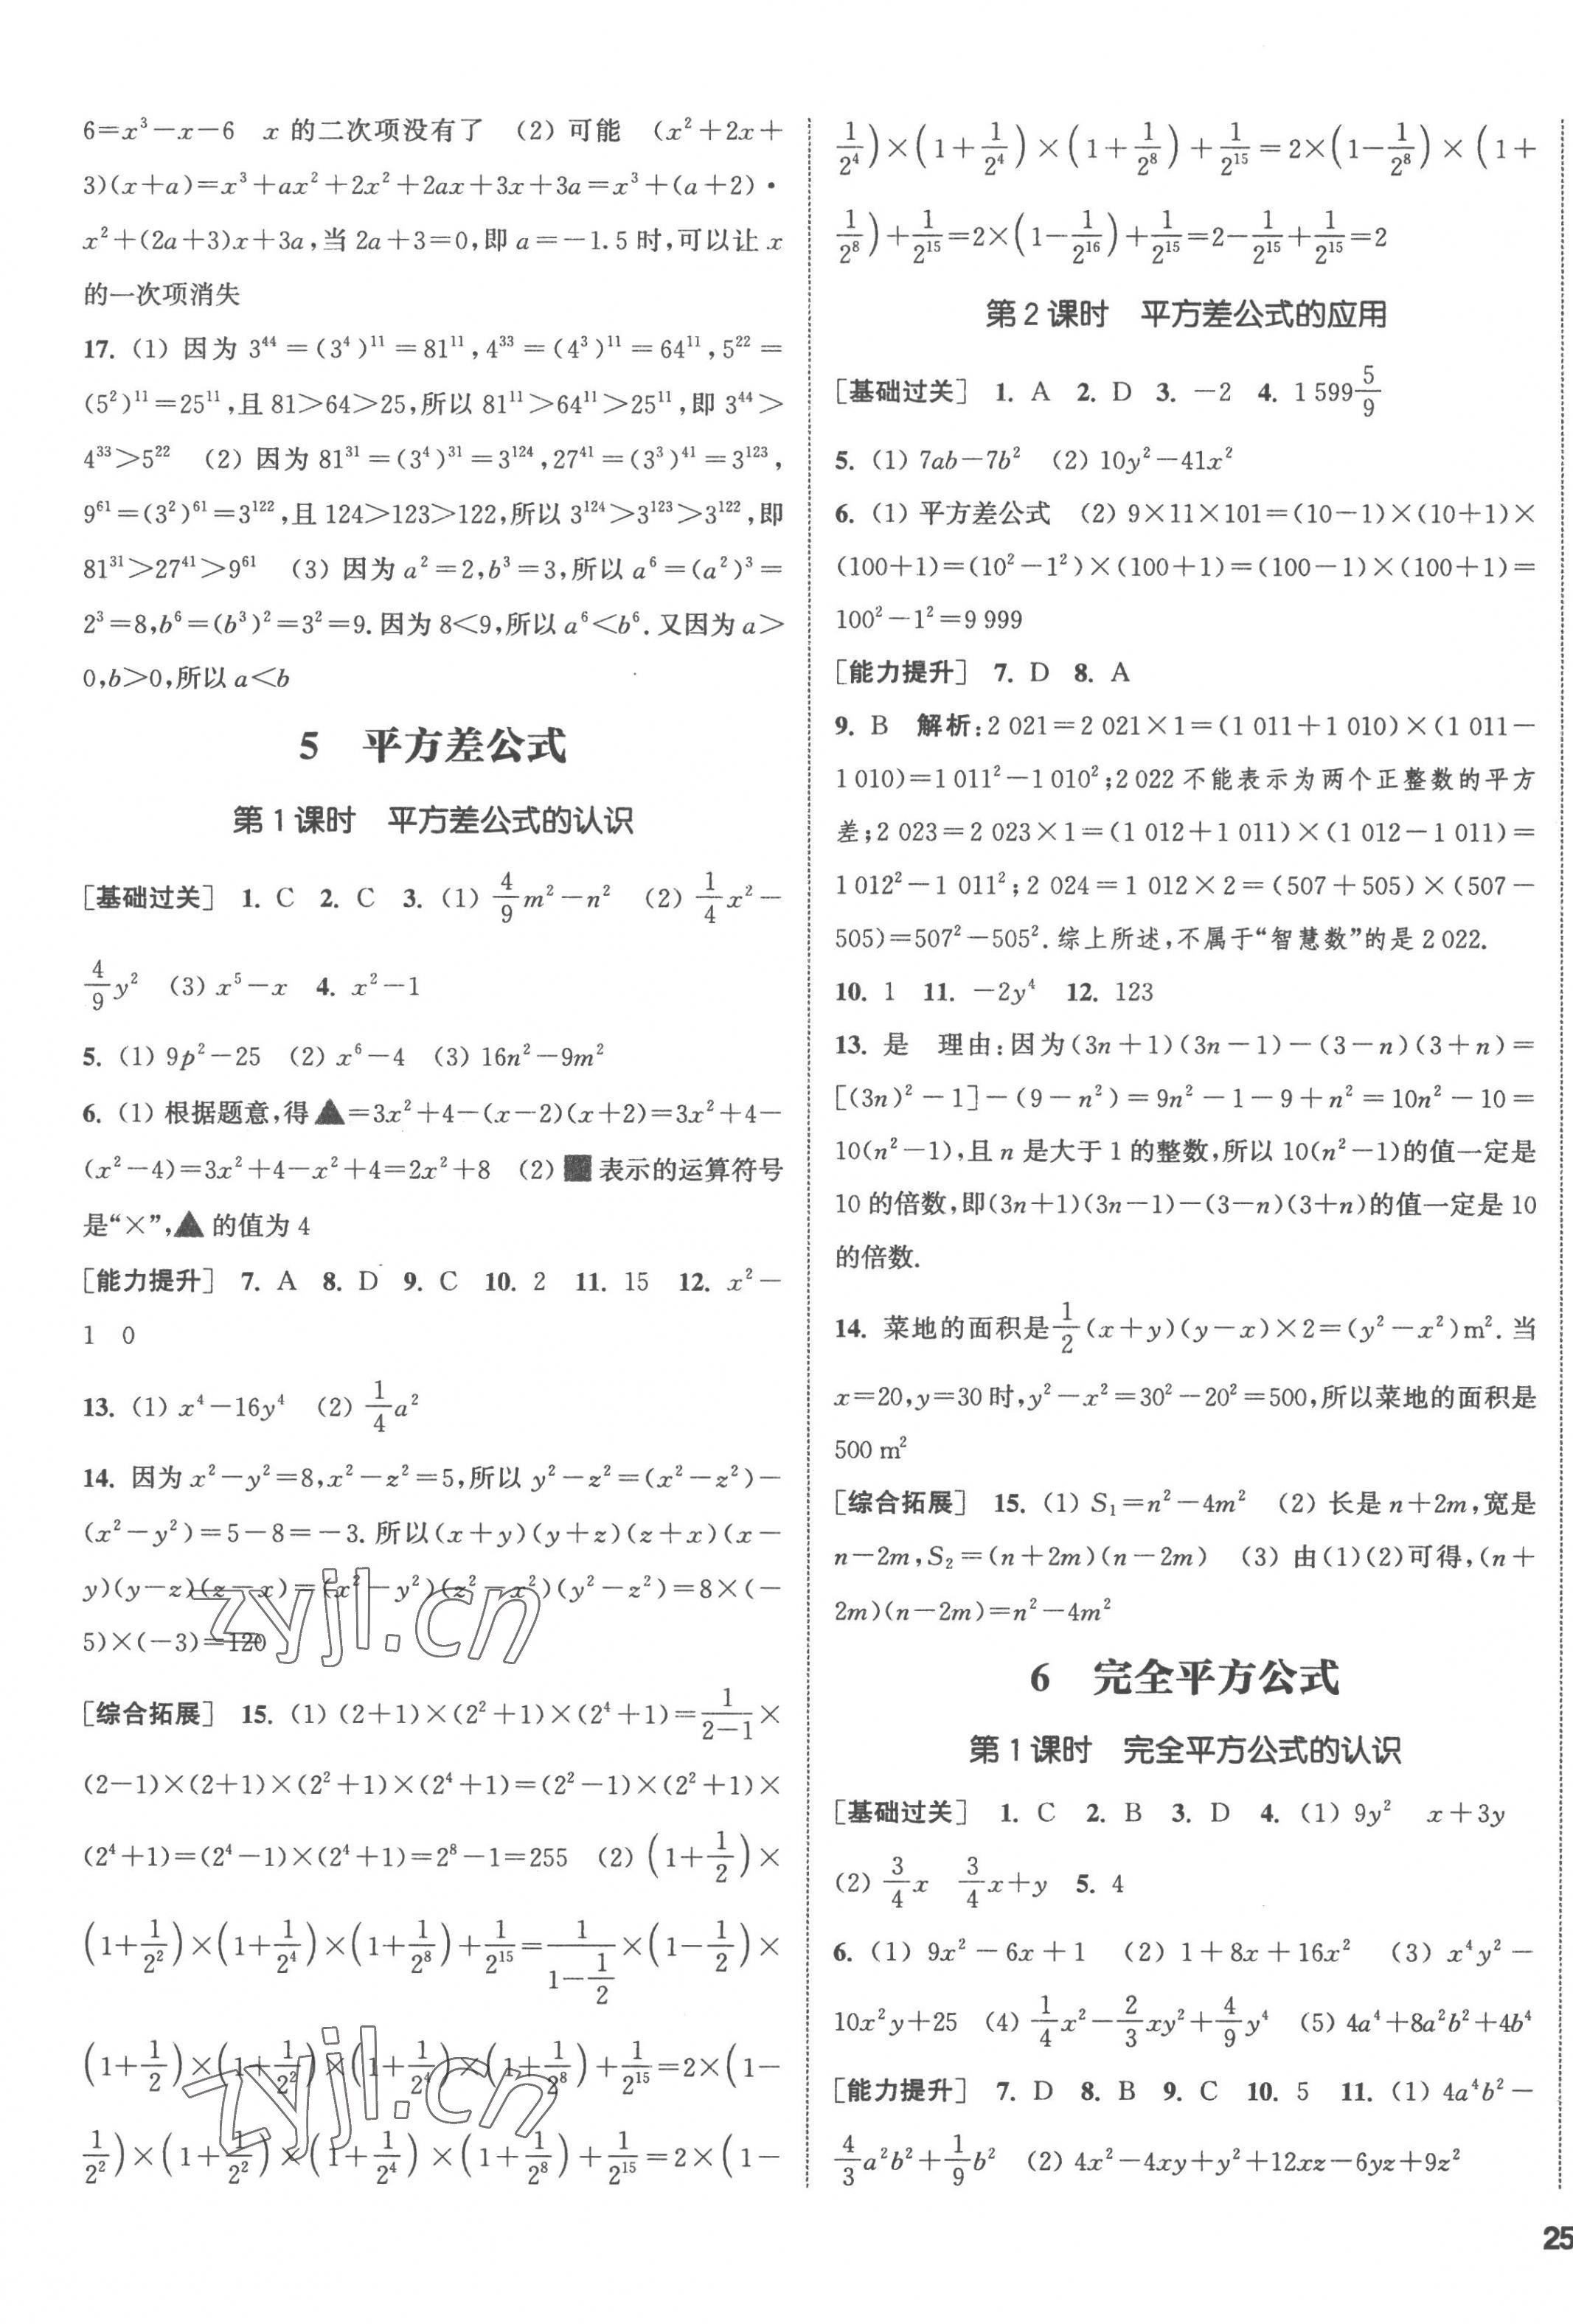 6=x³-x-6　x 的二次项没有了　(2) 可能　(x²+2x+
3)(x+a)=x³+ax²+2x²+2ax+3x+3a=x³+(a+2)·
x²+(2a+3)x+3a,当 2a+3=0,即 a=-1.5 时,可以让 x
的一次项消失
17. (1) 因为 3⁴⁴=(3⁴)¹¹=81¹¹,4³³=(4³)¹¹=64¹¹,5²²=
(5²)¹¹=25¹¹,且 81>64>25,所以 81¹¹>64¹¹>25¹¹,即 3⁴⁴>
4³³>5²²　(2) 因为 81³¹=(3⁴)³¹=3¹²⁴,27⁴¹=(3³)⁴¹=3¹²³,
9⁶¹=(3²)⁶¹=3¹²²,且 124>123>122,所以 3¹²⁴>3¹²³>3¹²²,即
81³¹>27⁴¹>9⁶¹　(3) 因为 a²=2,b³=3,所以 a⁶=(a²)³=
2³=8,b⁶=(b³)²=3²=9.因为 8<9,所以 a⁶<b⁶.又因为 a>
0,b>0,所以 a<b
5　平方差公式
第 1 课时　平方差公式的认识
[基础过关]　1. C　2. C　3. (1) 4/9 m²-n²　(2) 1/4 x²-
4/9 y²　(3) x⁵-x　4. x²-1
5. (1) 9p²-25　(2) x⁶-4　(3) 16n²-9m²
6. (1) 根据题意,得▲=3x²+4-(x-2)(x+2)=3x²+4-
(x²-4)=3x²+4-x²+4=2x²+8　(2) ■表示的运算符号
是“×”,▲的值为 4
[能力提升]　7. A　8. D　9. C　10. 2　11. 15　12. x²-
1　0
13. (1) x⁴-16y⁴　(2) 1/4 a²
14. 因为 x²-y²=8,x²-z²=5,所以 y²-z²=(x²-z²)-
(x²-y²)=5-8=-3.所以(x+y)(y+z)(z+x)(x-
y)(y-z)(z-x)=(x²-y²)(z²-x²)(y²-z²)=8×(-
5)×(-3)=120
zyjl.cn
[综合拓展]　15. (1) (2+1)×(2²+1)×(2⁴+1)=1/(2-1)×
(2-1)×(2+1)×(2²+1)×(2⁴+1)=(2²-1)×(2²+1)×
(2⁴+1)=(2⁴-1)×(2⁴+1)=2⁸-1=255　(2) (1+1/2)×
(1+1/2²)×(1+1/2⁴)×(1+1/2⁸)+1/2¹⁵=1/(1-1/2)×(1-1/2)×
(1+1/2)×(1+1/2²)×(1+1/2⁴)×(1+1/2⁸)+1/2¹⁵=2×(1-
zyjl.cn
1/2²)×(1+1/2²)×(1+1/2⁴)×(1+1/2⁸)+1/2¹⁵=2×(1-
1/2⁴)×(1+1/2⁴)×(1+1/2⁸)+1/2¹⁵=2×(1-1/2⁸)×(1+
1/2⁸)+1/2¹⁵=2×(1-1/2¹⁶)+1/2¹⁵=2-1/2¹⁵+1/2¹⁵=2
第 2 课时　平方差公式的应用
[基础过关]　1. A　2. D　3. -2　4. 1 599 5/9
5. (1) 7ab-7b²　(2) 10y²-41x²
6. (1) 平方差公式　(2) 9×11×101=(10-1)×(10+1)×
(100+1)=(10²-1²)×(100+1)=(100-1)×(100+1)=
100²-1²=9 999
[能力提升]　7. D　8. A
9. B　解析:2 021=2 021×1=(1 011+1 010)×(1 011-
1 010)=1 011²-1 010²;2 022 不能表示为两个正整数的平方
差;2 023=2 023×1=(1 012+1 011)×(1 012-1 011)=
1 012²-1 011²;2 024=1 012×2=(507+505)×(507-
505)=507²-505².综上所述,不属于“智慧数”的是 2 022.
10. 1　11. -2y⁴　12. 123
13. 是　理由:因为(3n+1)(3n-1)-(3-n)(3+n)=
[(3n)²-1]-(9-n²)=9n²-1-9+n²=10n²-10=
10(n²-1),且 n 是大于 1 的整数,所以 10(n²-1)的值一定是
10 的倍数,即(3n+1)(3n-1)-(3-n)(3+n)的值一定是 10
的倍数.
14. 菜地的面积是 1/2 (x+y)(y-x)×2=(y²-x²)m².当
x=20,y=30 时,y²-x²=30²-20²=500,所以菜地的面积是
500 m²
[综合拓展]　15. (1) S₁=n²-4m²　(2) 长是 n+2m,宽是
n-2m,S₂=(n+2m)(n-2m)　(3) 由(1)(2)可得,(n+
2m)(n-2m)=n²-4m²
6　完全平方公式
第 1 课时　完全平方公式的认识
[基础过关]　1. C　2. B　3. D　4. (1) 9y²　x+3y
(2) 3/4 x　3/4 x+y　5. 4
6. (1) 9x²-6x+1　(2) 1+8x+16x²　(3) x⁴y²-
10x²y+25　(4) 1/4 x²-2/3 xy²+4/9 y⁴　(5) 4a⁴+8a²b²+4b⁴
[能力提升]　7. D　8. B　9. C　10. 5　11. (1) 4a⁴b²-
4/3 a²b²+1/9 b²　(2) 4x²-4xy+y²+12xz-6yz+9z²
25